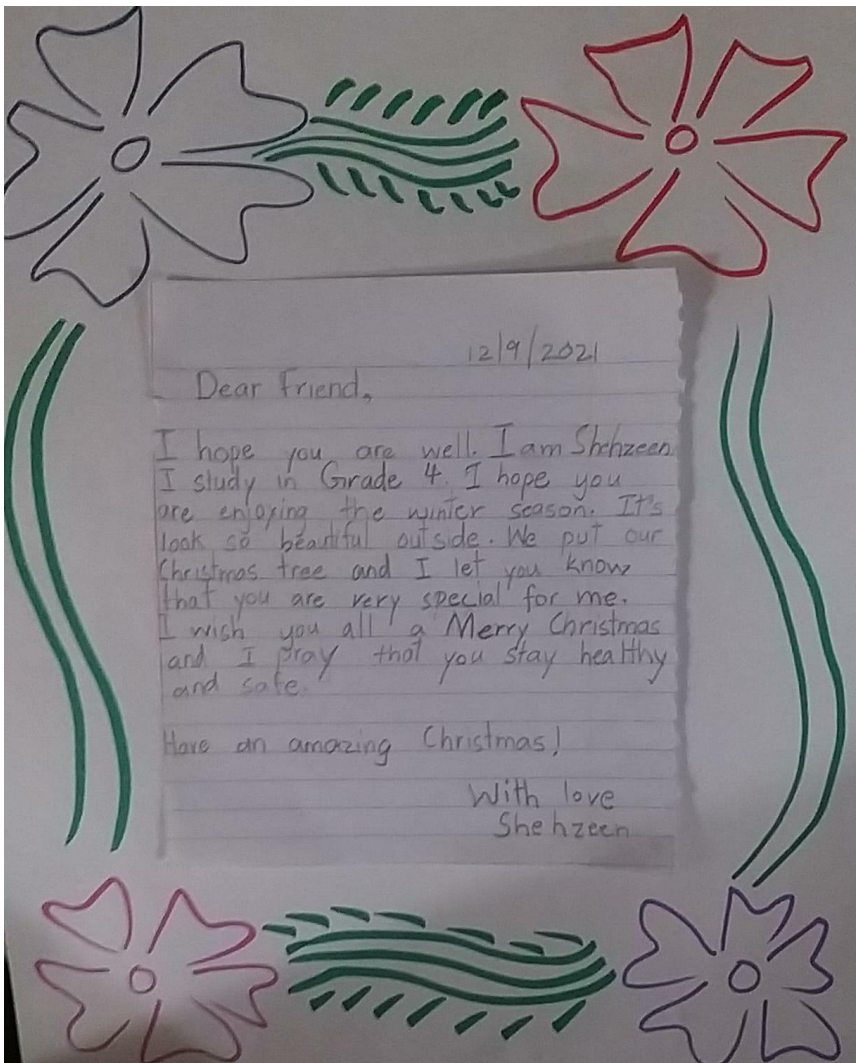 12/9/2021
Dear Friend,
I hope you are well. I am Shehzeen.
I study in Grade 4. I hope you
are enjoying the winter season. It's
look so beautiful outside. We put our
Christmas tree and I let you know
that you are very special for me.
I wish you all a Merry Christmas
and I pray that you stay healthy
and safe.
Have an amazing Christmas!
With love
Shehzeen